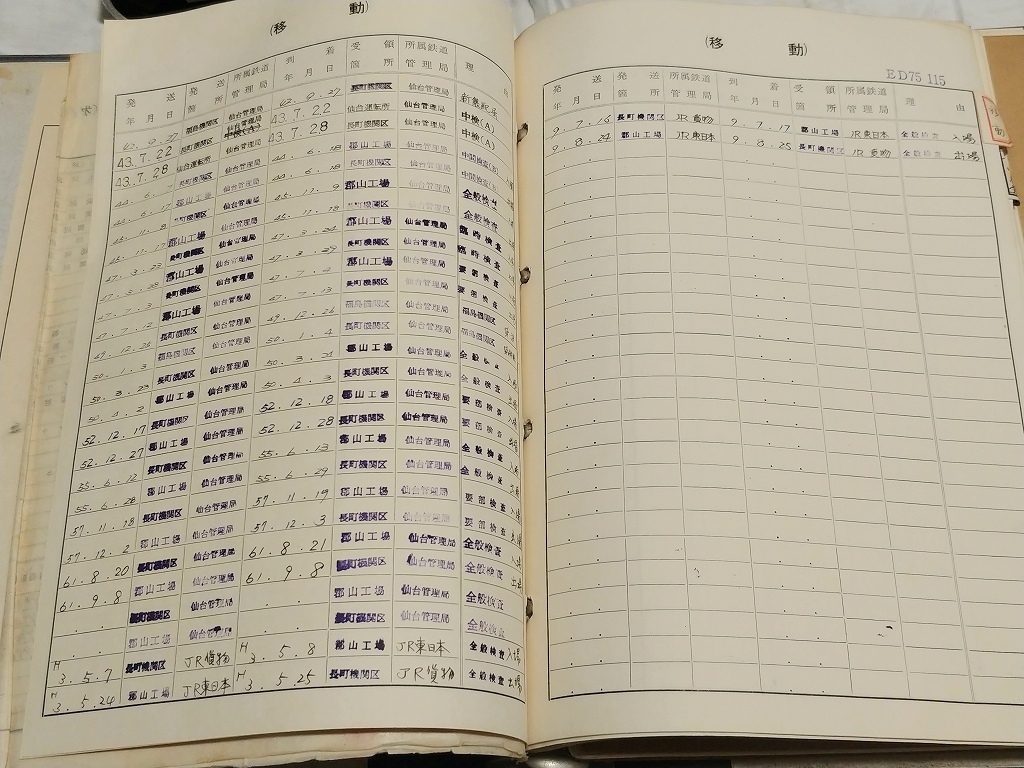 (移 動)
発 送 所属鉄道 到 着 受 領 所属鉄道 理 由
年 月 日 箇 所 管理局 年 月 日 箇 所 管理局
福島機関区 仙台管理局 42.9.27 長町機関区 仙台管理局 新製配属
43.7.22 長町機関区 仙台管理局 43.7.22 仙台運転所 仙台管理局 中検(A)
43.7.28 仙台運転所 仙台管理局 43.7.28 長町機関区 仙台管理局 中検(A)
長町機関区 仙台管理局 44.6.18 郡山工場 仙台管理局
44.6.17 郡山工場 仙台管理局 44.6.18 長町機関区 仙台管理局
長町機関区 仙台管理局 45.11.9 郡山工場 仙台管理局 全般検査
45.11.17 郡山工場 仙台管理局 45.11.18 長町機関区 仙台管理局 全般検査
47.3.23 長町機関区 仙台管理局 47.3.24 郡山工場 仙台管理局 臨時検査
47.3.28 郡山工場 仙台管理局 47.3.29 長町機関区 仙台管理局 臨時検査
長町機関区 仙台管理局 郡山工場 仙台管理局 要部検査
47.7.12 郡山工場 仙台管理局 47.7.13 長町機関区 仙台管理局 要部検査
49.12.26 長町機関区 仙台管理局 49.12.26 福島機関区 仙台管理局 福島機関区
50.1.3 福島機関区 仙台管理局 50.1.4 長町機関区 仙台管理局 福島機関区
50.3.23 長町機関区 仙台管理局 郡山工場 仙台管理局 全般
50.4.2 郡山工場 仙台管理局 50.4.3 長町機関区 仙台管理局 全般検査
52.12.17 長町機関区 仙台管理局 52.12.18 郡山工場 仙台管理局 要部検査
52.12.27 郡山工場 仙台管理局 52.12.28 長町機関区 仙台管理局 要部検査
55.6.12 長町機関区 仙台管理局 55.6.13 郡山工場 仙台管理局 全般検査
55.6.28 郡山工場 仙台管理局 55.6.29 長町機関区 仙台管理局 全般検査
57.11.18 長町機関区 仙台管理局 57.11.19 郡山工場 仙台管理局 要部検査 入場
57.12.2 郡山工場 仙台管理局 57.12.3 長町機関区 仙台管理局 要部検査
61.8.20 長町機関区 仙台管理局 61.8.21 郡山工場 仙台管理局 全般検査 入場
61.9.8 郡山工場 仙台管理局 61.9.8 長町機関区 仙台管理局 全般検査 出場
長町機関区 仙台管理局 郡山工場 仙台管理局 全般検査
郡山工場 仙台管理局 長町機関区 仙台管理局 全般検査
H3.5.7 長町機関区 JR貨物 H3.5.8 郡山工場 JR東日本 全般検査 入場
H3.5.24 郡山工場 JR東日本 H3.5.25 長町機関区 JR貨物 全般検査 出場
(移 動)
ED75 115
発 送 発 送 所属鉄道 到 着 受 領 所属鉄道 理 由
年 月 日 箇 所 管理局 年 月 日 箇 所 管理局
9.7.16 長町機関区 JR貨物 9.7.17 郡山工場 JR東日本 全般検査 入場
9.8.24 郡山工場 JR東日本 9.8.25 長町機関区 JR貨物 全般検査 出場